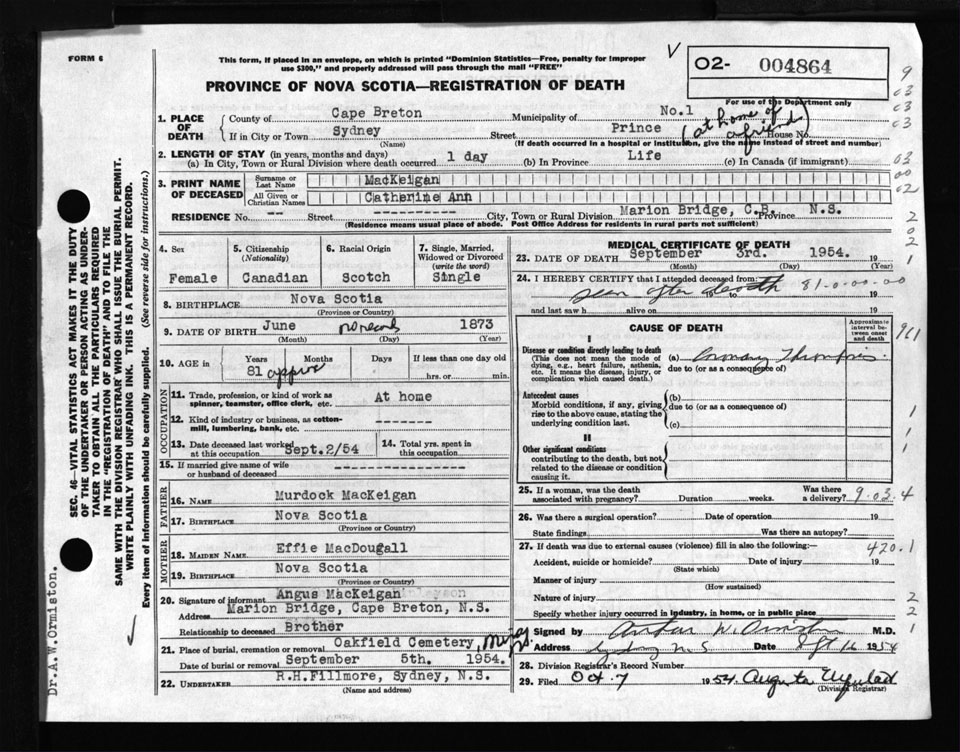 FORM 6
This form, if placed in an envelope, on which is printed "Dominion Statistics—Free, penalty for improper
use $300," and properly addressed will pass through the mail "FREE"
PROVINCE OF NOVA SCOTIA—REGISTRATION OF DEATH
V
02- 004864
For use of the Department only
1. PLACE OF DEATH
County of Cape Breton Municipality of No.1
If in City or Town Sydney Street Prince House No.
(at home of a friend)
(Name) (If death occurred in a hospital or institution, give the name instead of street and number)
2. LENGTH OF STAY (in years, months and days)
(a) In City, Town or Rural Division where death occurred 1 day (b) In Province Life (c) In Canada (if immigrant)
3. PRINT NAME OF DECEASED
Surname or Last Name MacKeigan
All Given or Christian Names Catherine Ann
RESIDENCE No. -- Street ---------- City, Town or Rural Division Marion Bridge, C.B. Province N.S.
(Residence means usual place of abode. Post Office Address for residents in rural parts not sufficient)
4. Sex Female
5. Citizenship (Nationality) Canadian
6. Racial Origin Scotch
7. Single, Married, Widowed or Divorced (write the word) Single
8. BIRTHPLACE Nova Scotia
(Province or Country)
9. DATE OF BIRTH June no record 1873
(Month) (Day) (Year)
10. AGE in Years Months Days If less than one day old
81 approx hrs. or min.
OCCUPATION
11. Trade, profession, or kind of work as spinner, teamster, office clerk, etc. At home
12. Kind of industry or business, as cotton-mill, lumbering, bank, etc. ----------
13. Date deceased last worked at this occupation Sept.2/54
14. Total yrs. spent in this occupation
15. If married give name of wife or husband of deceased ----------
FATHER
16. NAME Murdock MacKeigan
17. BIRTHPLACE Nova Scotia
(Province or Country)
MOTHER
18. MAIDEN NAME Effie MacDougall
19. BIRTHPLACE Nova Scotia
(Province or Country)
20. Signature of informant Angus MacKeigan
Address Marion Bridge, Cape Breton, N.S.
Relationship to deceased Brother
21. Place of burial, cremation or removal Oakfield Cemetery,
Date of burial or removal September 5th. 1954.
22. UNDERTAKER R.H.Fillmore, Sydney, N.S.
(Name and address)
MEDICAL CERTIFICATE OF DEATH
23. DATE OF DEATH September 3rd. 1954. 19
(Month) (Day) (Year)
24. I HEREBY CERTIFY that I attended deceased from:
seen after death 81-0-00-00
19 to 19
and last saw h alive on 19
CAUSE OF DEATH
Approximate interval between onset and death
I
Disease or condition directly leading to death
(This does not mean the mode of dying, e.g., heart failure, asthenia, etc. It means the disease, injury, or complication which caused death.)
(a)
due to (or as a consequence of)
Antecedent causes
Morbid conditions, if any, giving rise to the above cause, stating the underlying condition last.
(b)
due to (or as a consequence of)
(c)
II
Other significant conditions
contributing to the death, but not related to the disease or condition causing it.
25. If a woman, was the death associated with pregnancy? Duration weeks. Was there a delivery?
9.03.4
26. Was there a surgical operation? Date of operation 19
State findings Was there an autopsy?
27. If death was due to external causes (violence) fill in also the following:—
420.1
Accident, suicide or homicide? Date of injury 19
(State which)
Manner of injury
(How sustained)
Nature of injury
Specify whether injury occurred in industry, in home, or in public place
Signed by Arthur W. Ormiston M.D.
Address Sydney N S Date Sept 16 1954
28. Division Registrar's Record Number
29. Filed Oct. 7 1954 Augusta
(Division Registrar)
SEC. 46—VITAL STATISTICS ACT MAKES IT THE DUTY
OF THE UNDERTAKER OR PERSON ACTING AS UNDER-
TAKER TO OBTAIN ALL THE PARTICULARS REQUIRED
IN THE "REGISTRATION OF DEATH" AND TO FILE THE
SAME WITH THE DIVISION REGISTRAR WHO SHALL ISSUE THE BURIAL PERMIT.
WRITE PLAINLY WITH UNFADING INK. THIS IS A PERMANENT RECORD.
Every item of Information should be carefully supplied. (See reverse side for instructions.)
Dr.A.W.Ormiston.
9
03
03
03
03
00
02
2
0
2
1
1
1
1
2
2
1